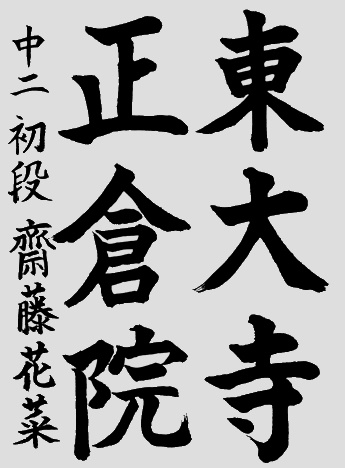 東大寺
正倉院
中二 初段 齋藤花菜